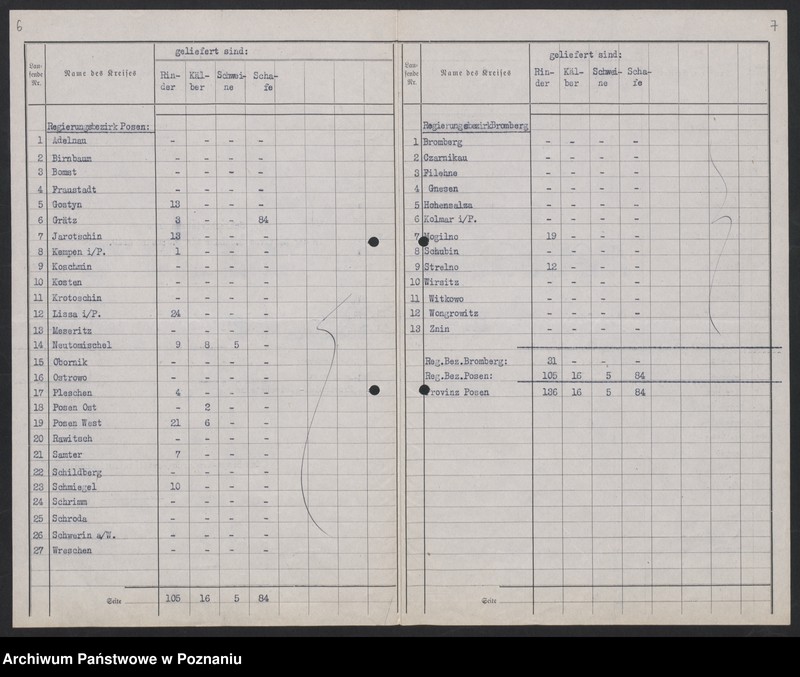 6
geliefert sind:
Lau-
fende
Nr.
Name des Kreises
Rin-
der
Käl-
ber
Schwei-
ne
Scha-
fe
Regierungsbezirk Posen:
1 Adelnau - - - -
2 Birnbaum - - - -
3 Bomst - - - -
4 Fraustadt - - - -
5 Gostyn 13 - - -
6 Grätz 3 - - 84
7 Jarotschin 13 - - -
8 Kempen i/P. 1 - - -
9 Koschmin - - - -
10 Kosten - - - -
11 Krotoschin - - - -
12 Lissa i/P. 24 - - -
13 Meseritz - - - -
14 Neutomischel 9 8 5 -
15 Obornik - - - -
16 Ostrowo - - - -
17 Pleschen 4 - - -
18 Posen Ost - 2 - -
19 Posen West 21 6 - -
20 Rawitsch - - - -
21 Samter 7 - - -
22 Schildberg - - - -
23 Schmiegel 10 - - -
24 Schrimm - - - -
25 Schroda - - - -
26 Schwerin a/W. - - - -
27 Wreschen - - - -
Seite 105 16 5 84
7
geliefert sind:
Lau-
fende
Nr.
Name des Kreises
Rin-
der
Käl-
ber
Schwei-
ne
Scha-
fe
Regierungsbezirk Bromberg
1 Bromberg - - - -
2 Czarnikau - - - -
3 Filehne - - - -
4 Gnesen - - - -
5 Hohensalza - - - -
6 Kolmar i/P. - - - -
7 Mogilno 19 - - -
8 Schubin - - - -
9 Strelno 12 - - -
10 Wirsitz - - - -
11 Witkowo - - - -
12 Wongrowitz - - - -
13 Znin - - - -
Reg.Bez.Bromberg: 31 - - -
Reg.Bez.Posen: 105 16 5 84
Provinz Posen 136 16 5 84
Seite
Archiwum Państwowe w Poznaniu